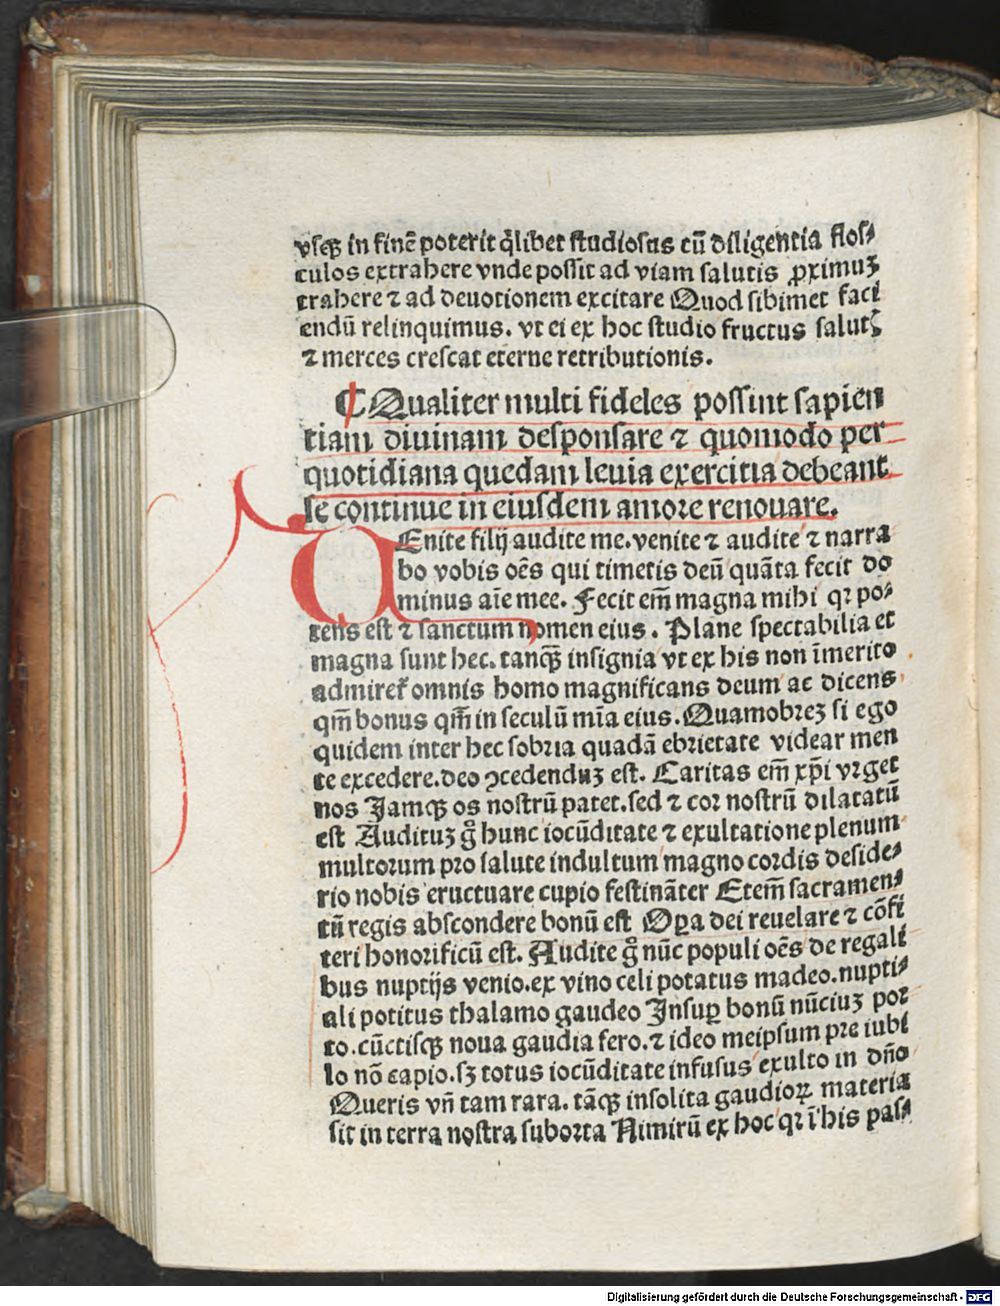 vsqꝫ in finē poterit q̄libet studiosus cū diligentia flos⸗
culos extrahere vnde possit ad viam salutis ꝓximuꝫ
trahere ⁊ ad deuotionem excitare Quod sibimet faci
endū relinquimus. vt ei ex hoc studio fructus salutꝭ
⁊ merces crescat eterne retributionis.
¶ Qualiter multi fideles possint sapien
tiam diuinam desponsare ⁊ quomodo per
quotidiana quedam leuia exercitia debeant
se continue in eiusdem amore renouare.
VEnite filij audite me. venite ⁊ audite ⁊ narra
bo vobis oēs qui timetis deū quāta fecit do
minus aīe mee. Fecit em̄ magna mihi qꝛ po⸗
tens est ⁊ sanctum nomen eius. Plane spectabilia et
magna sunt hec. tanqꝫ insignia vt ex his non īmerito
admiret̄ omnis homo magnificans deum ac dicens
qm̄ bonus qm̄ in seculū mīa eius. Quamobreꝫ si ego
quidem inter hec sobria quadā ebrietate videar men
te excedere. deo ꝯcedenduꝫ est. Caritas em̄ xp̄i vrget
nos Jamqꝫ os nostrū patet. sed ⁊ cor nostrū dilatatū
est Audituꝫ gͦ hunc iocūditate ⁊ exultatione plenum
multorum pro salute indultum magno cordis deside⸗
rio nobis eructuare cupio festināter Etem̄ sacramen⸗
tū regis abscondere bonū est Oꝑa dei reuelare ⁊ cōfi
teri honorificū est. Audite gͦ nūc populi oēs de regali
bus nuptijs venio. ex vino celi potatus madeo. nupti⸗
ali potitus thalamo gaudeo Insuꝑ bonū nūciuꝫ por
to. cūctisqꝫ noua gaudia fero. ⁊ ideo meipsum pre iubi
lo nō capio. sꝫ totus iocūditate infusus exulto in dn̄o
Queris vn̄ tam rara. tāqꝫ insolita gaudioꝝ materia
sit in terra nostra suborta Nimirū ex hoc qꝛ ī his pas⸗
Digitalisierung gefördert durch die Deutsche Forschungsgemeinschaft - DFG